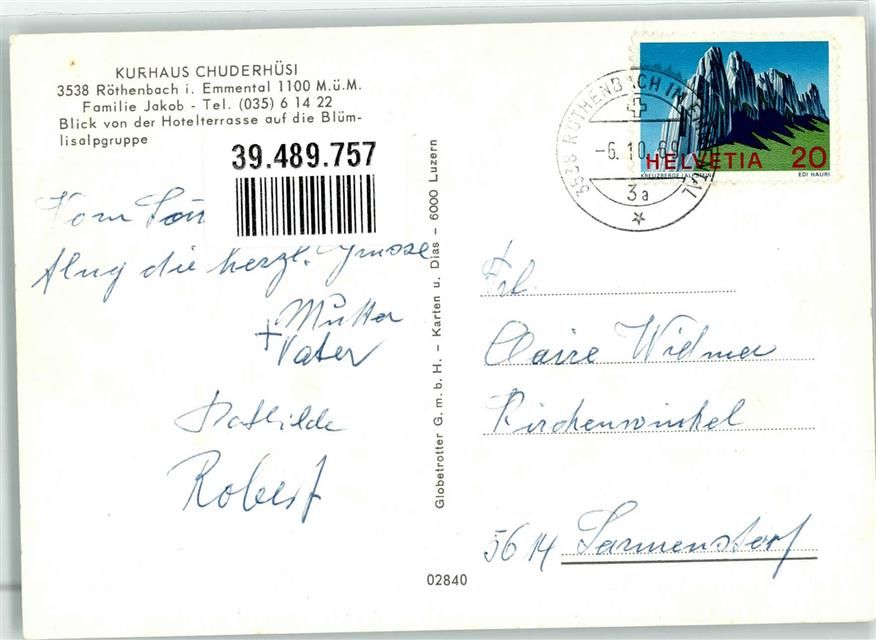 KURHAUS CHUDERHÜSI
3538 Röthenbach i. Emmental 1100 M.ü.M.
Familie Jakob - Tel. (035) 6 14 22
Blick von der Hotelterrasse auf die Blüm-
lisalpgruppe
39.489.757
Vom
flug die herzl. Grüsse
Mutter
+ Vater
Mathilde
Robert
Globetrotter G.m.b.H. – Karten u. Dias – 6000 Luzern
02840
3538 RÖTHENBACH IM EMMENTAL
-6.10.69
3a
HELVETIA 20
KREUZBERGE (ALPSTEIN)
EDI HAURI
Frl.
Claire Widmer
Kirchenwinkel
5614 Sarmenstorf